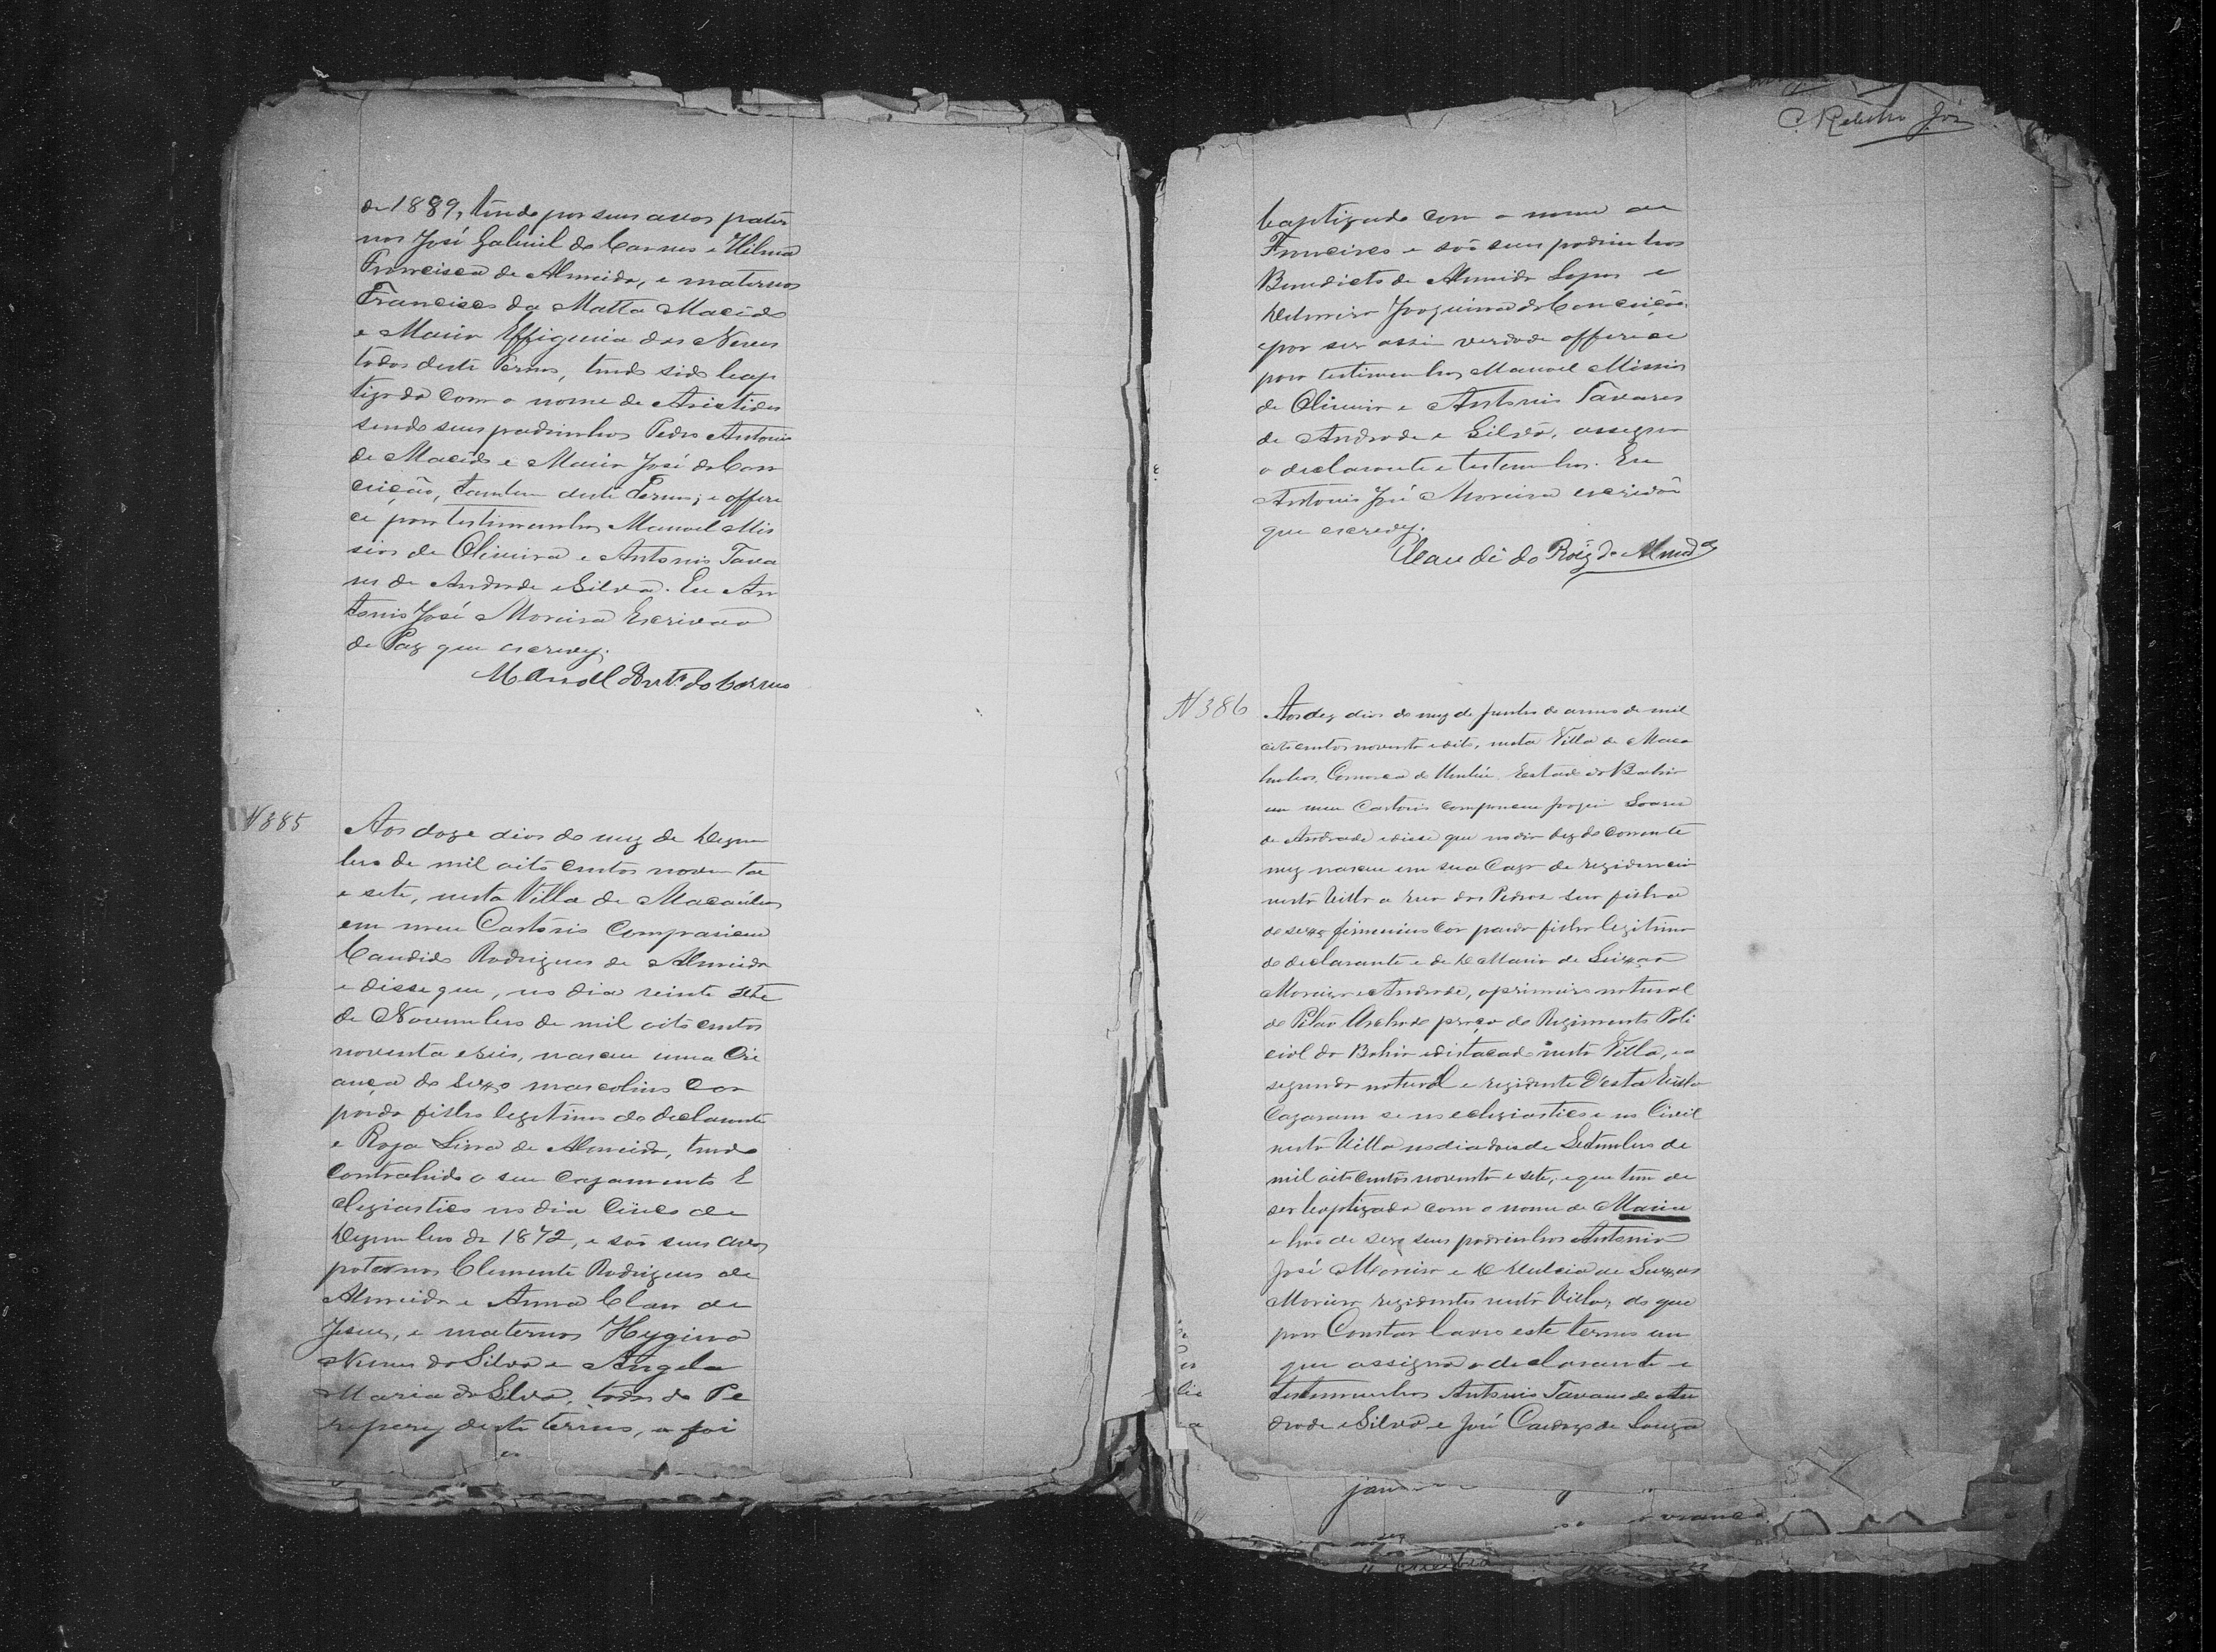 de 1889, tindo por seus avos pater
nos José Gabriil do Carmo e
Francisca de Almeida, e maternos
Francisco da Matta Macêdo
e Maria Effigenia das Neves
todos deste Termo, tendo sido bap
tizado com o nome de Aristides
sendo seus padrinhos Pedro Antonio
de Macêdo e Maria José da Con
ceição, tambem deste Termo; e offere
ce por testimunhas Manoel Mis
sias de Oliveira e Antonio Tava
res de Andrade e Silva. Eu An
tonio José Moreira Escrivão
de Paz que escrevy.
Manoel Antº do Carmo
N 385
Aos doze dias do mez de Dezem
bro de mil oito centos noventa
e sete, nesta Villa de Macaúbas
em meu Cartorio Compariceu
Candido Rodrigues de Almeida
e disse que, no dia vinte sete
de Novembro de mil oito centos
noventa e seis, nasceu uma Cri
ança do sexxo mascolino Cor
parda filho legitimo do declarante
e Roza Lina de Almeida, tendo
Contrahido o seu Cazamento E
cleziastico no dia Cinco de
Dezembro de 1872, e são seus avos
paternos Clemente Rodrigues de
Almeida e Anna Clara de
Jesus, e maternos Hygino
Nunes da Silva e Angela
Maria da Silva, todos do Pe
repery deste termo, e foi
C. Rabello Jor
baptizado com o nome de
Francisco e são seus padrinhos
Benedicto de Almeida Lopes e
Joaquina da Conceição.
e por ser assi verdade offerece
por testimunhas Manoel Missias
de Oliveira e Antonio Tavares
de Andrade e Silva, assigna
o declarante e testemunhas. Eu
Antonio José Moreira escrivão
que escrevy.
Candido Roiz de Almda
N 386
Aos dez dias do mez de Junho do anno de mil
oito centos noventa e oito, nesta Villa de Maca
hubas, Comarca de Urubú, Estado da Bahia
em meu Cartorio compareceu Soares
de Andrade e disse que no dia dez do corrente
mez nasceu em sua Caza de rezidencia
nesta Villa a rua das Pedras sua filha
do sexxo fiminino Cor parda filha legitima
do declarante e de D Maria de
Moreira e Andrade, o primeiro natural
de Pilão Arcado praça do Regimento Poli
cial da Bahia e distacado nesta Villa, e a
segunda natural e rezidente D'esta Villa
Cazaram se no ecleziastico e no Civil
nesta Villa no dia dois de Setembro de
mil oito centos noventa e sete, e que tem de
ser baptizada com o nome de Maria
e hão de ser seus padrinhos Antonio
José Moreira e D
Moreira rezidentes nesta Villa, do que
para Constar lavro este termo em
que assigna o declarante e
testemunhas Antonio Tavares de An
drade e Silva e José Cardozo de Souza